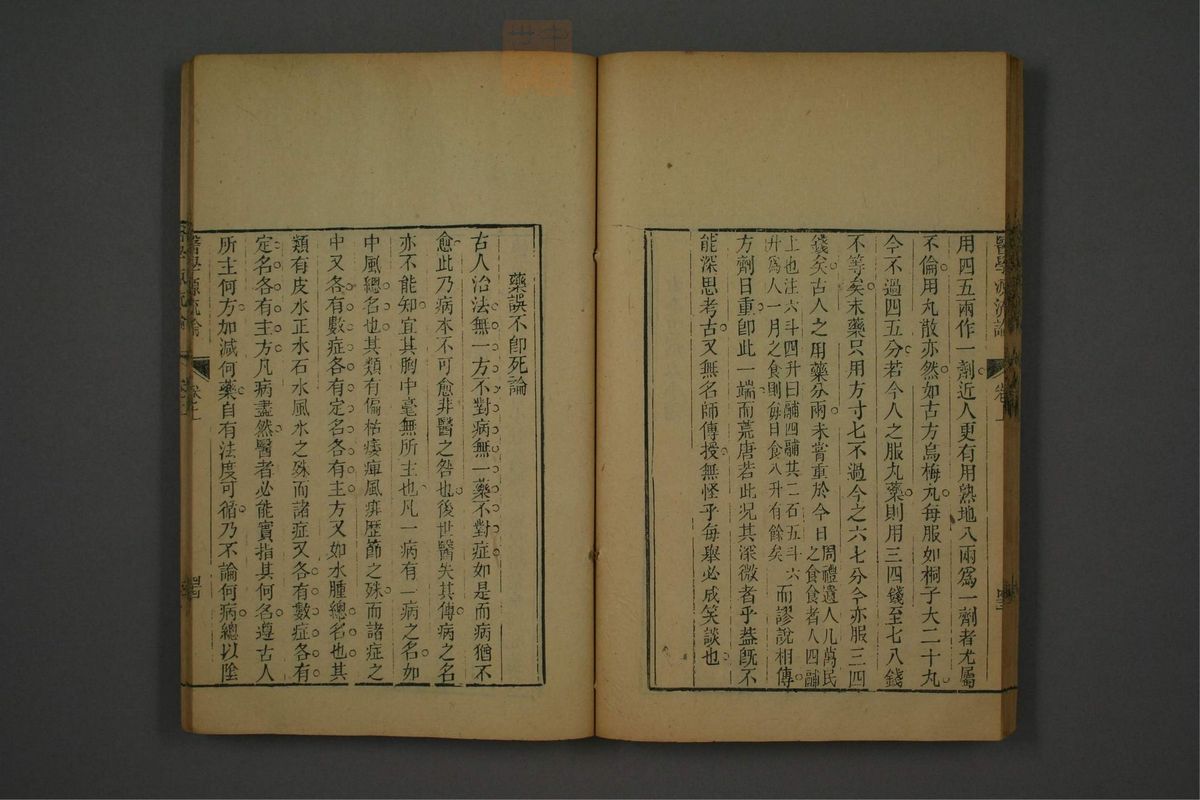 醫學源流論
卷上
用四五兩作一劑近人更有用熟地八兩爲一劑者尤屬
不倫用丸散亦然如古方烏梅丸每服如桐子大二十丸
今不過四五分若今人之服丸藥則用三四錢至七八錢
不等矣末藥只用方寸匕不過今之六七分今亦服三四
錢矣古人之用藥分兩未嘗重於今日周禮遺人凡萬民之食食者人四鬴
上也注六斗四升曰鬴四鬴共二石五斗六升爲人一月之食則每日食八升有餘矣而謬說相傳
方劑日重卽此一端而荒唐若此况其深微者乎蓋旣不
能深思考古又無名師傳授無怪乎每舉必成笑談也
藥誤不卽死論
古人治法無一方不對病無一藥不對症如是而病猶不
愈此乃病本不可愈非醫之咎也後世醫失其傳病之名
亦不能知宜其胸中毫無所主也凡一病有一病之名如
中風總名也其類有偏枯痿痺風痱歷節之殊而諸症之
中又各有數症各有定名各有主方又如水腫總名也其
類有皮水正水石水風水之殊而諸症又各有數症各有
定名各有主方凡病盡然醫者必能實指其何名遵古人
所主何方加減何藥自有法度可循乃不論何病總以陰
醫學源流論